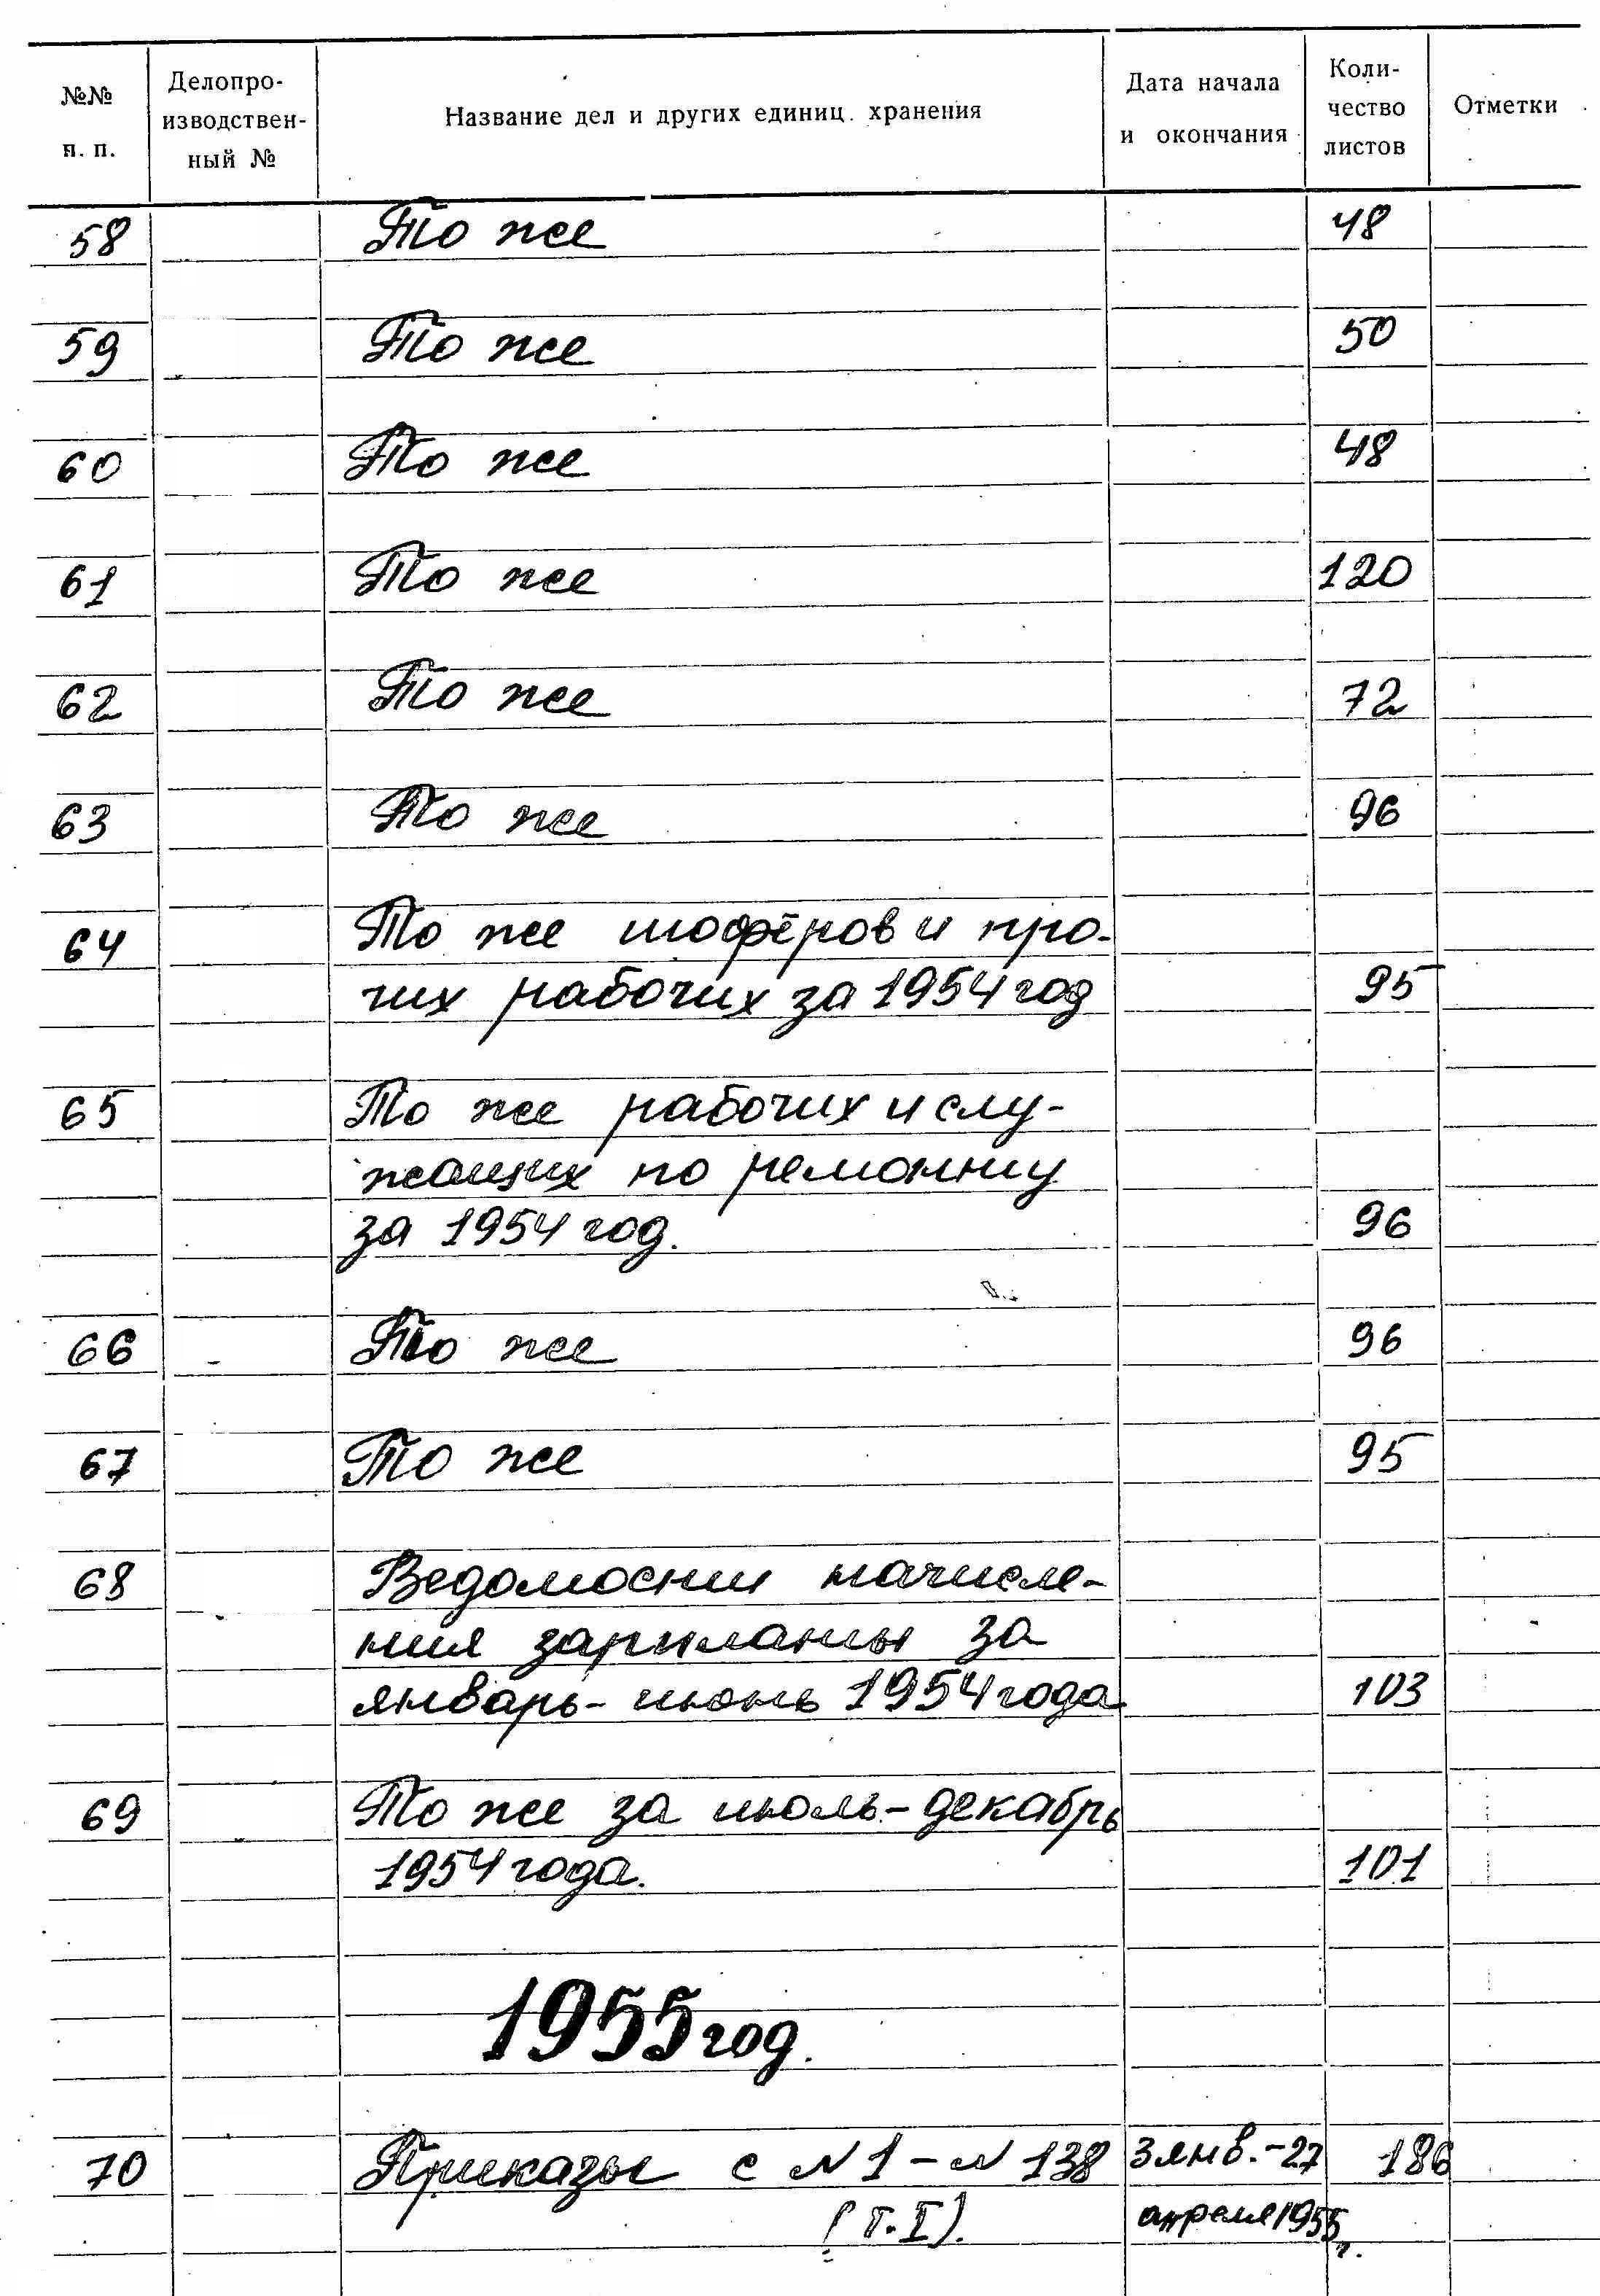 №№ п. п. Делопроизводственный № Название дел и других единиц хранения Дата начала и окончания Количество листов Отметки
58 То же 48
59 То же 50
60 То же 48
61 То же 120
62 То же 72
63 То же 96
64 То же шофёров и про-
чих рабочих за 1954 год 95
65 То же рабочих и слу-
жащих по ремонту
за 1954 год. 96
66 То же 96
67 То же 95
68 Ведомости начисле-
ния зарплаты за
январь-июнь 1954 года 103
69 То же за июль-декабрь
1954 года. 101
1955 год.
70 Приказы с №1 - № 138 3 янв.-27 186
(т. I). апреля 1955 г.